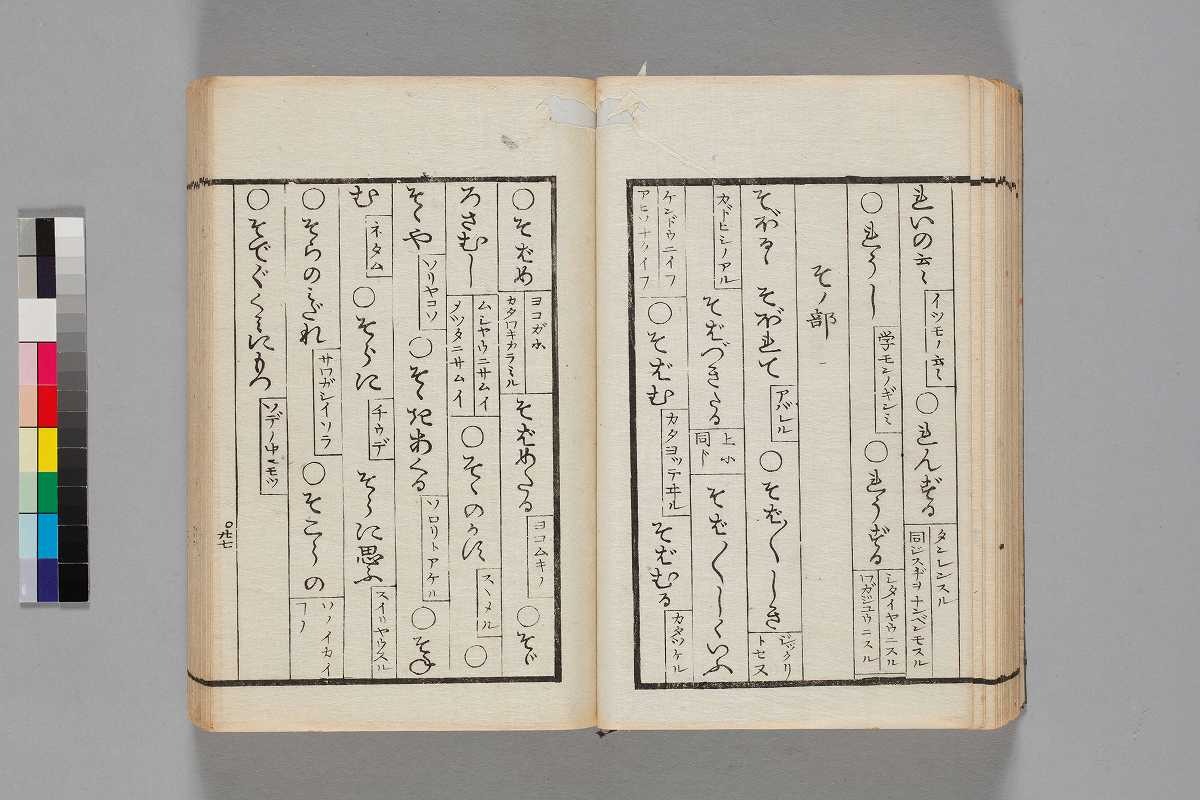 れいの云〻 イツモノ云〻 ○れんずる タンレンスル 同ジスヂヲナンベンモスル
○れうし 学モンノギンミ ○れうずる シタイヤウニスル ワガジユウニスル
そノ部
そぼるゝ そぼれて アバレル ○そば〳〵しき ビックリトセヌ
カドヒシノアル そばづきたる 上ニ同ド そば〳〵しくいふ
ケンドウニイフ アヒソナクイフ ○そばむ カタヨッテヰル そばむる カタヅケル
○そばめ ヨコガホ カタワキカラミル そばめたる ヨコムキノ ○そゞ
ろさむし ムシヤウニサムイ メツタニサムイ ○そゝのかす スヽメル ○
そゝや ソリヤコソ ○そゝきあくる ソロリトアケル ○そね
む ネタム ○そらに チウデ そらに思ふ スイリヤウスル
○そらのみだれ サワガシイソラ ○そこらの ソノイカイフノ
○そでぐくみにもつ ソデノ中ニモツ
○九七